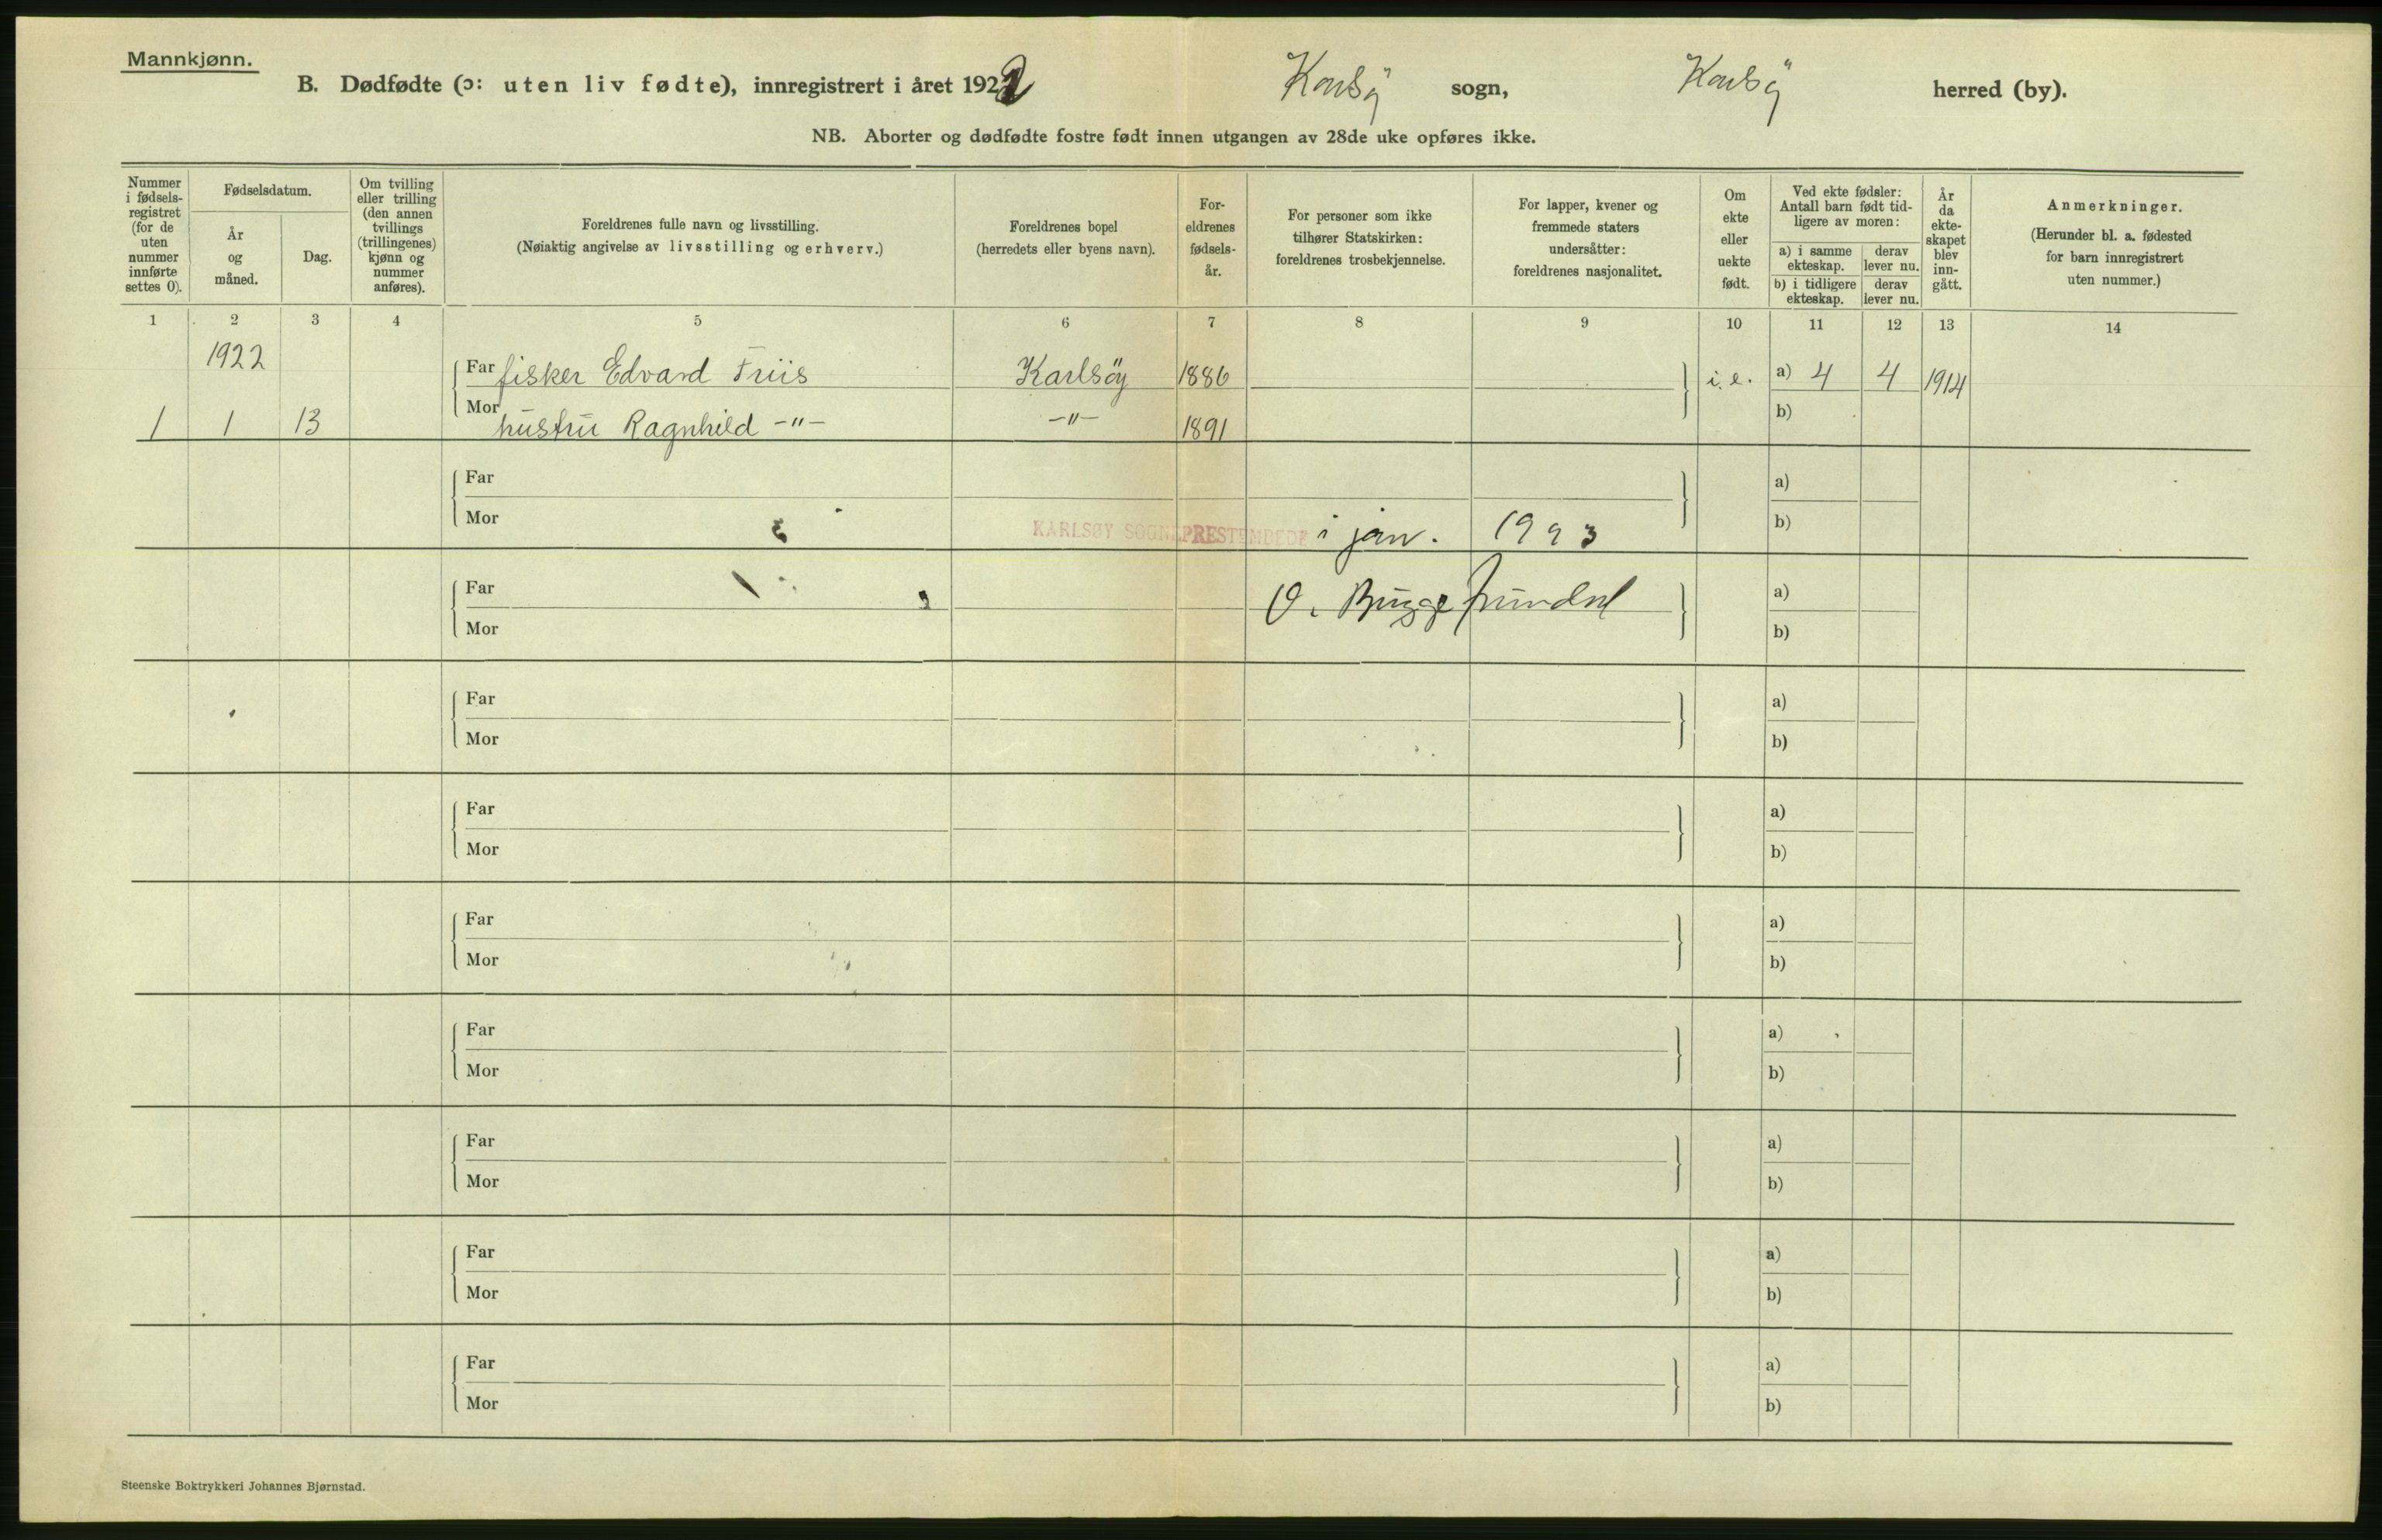 Mannkjønn.
B. Dødfødte (ɔ: uten liv fødte), innregistrert i året 1922 Karlsöy sogn, Karlsöy herred (by).
NB. Aborter og dødfødte fostre født innen utgangen av 28de uke opføres ikke.
Nummer i fødsels-registret (for de uten nummer innførte settes 0).
Fødselsdatum.
År og måned.
Dag.
Om tvilling eller trilling (den annen tvillings (trillingenes) kjønn og nummer anføres).
Foreldrenes fulle navn og livsstilling.
(Nøiaktig angivelse av livsstilling og erhverv.)
Foreldrenes bopel
(herredets eller byens navn).
For-eldrenes fødsels-år.
For personer som ikke tilhører Statskirken: foreldrenes trosbekjennelse.
For lapper, kvener og fremmede staters undersåtter: foreldrenes nasjonalitet.
Om ekte eller uekte født.
Ved ekte fødsler: Antall barn født tid-ligere av moren:
a) i samme ekteskap. derav lever nu.
b) i tidligere ekteskap. derav lever nu.
År da ekte-skapet blev inn-gått.
Anmerkninger.
(Herunder bl. a. fødested for barn innregistrert uten nummer.)
1 2 3 4 5 6 7 8 9 10 11 12 13 14
1922 Far fisker Edvard Friis Karlsöy 1886 i.e. a) 4 4 1914
1 1 13 Mor hustru Ragnhild -"- -"- 1891 b)
Far a)
Mor b)
KARLSØY SOGNEPRESTEMBEDE i jan. 1923
Far O. Bugge a)
Mor b)
Far a)
Mor b)
Far a)
Mor b)
Far a)
Mor b)
Far a)
Mor b)
Far a)
Mor b)
Far a)
Mor b)
Far a)
Mor b)
Steenske Boktrykkeri Johannes Bjørnstad.